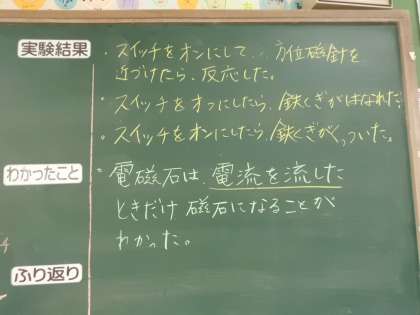 実験結果
・スイッチをオンにして、方位磁針を
近づけたら、反応した。
・スイッチをオフにしたら、鉄くぎがはなれた
・スイッチをオンにしたら、鉄くぎがくっついた。
わかったこと
・電磁石は、電流を流した
ときだけ磁石になることが
わかった。
ふり返り